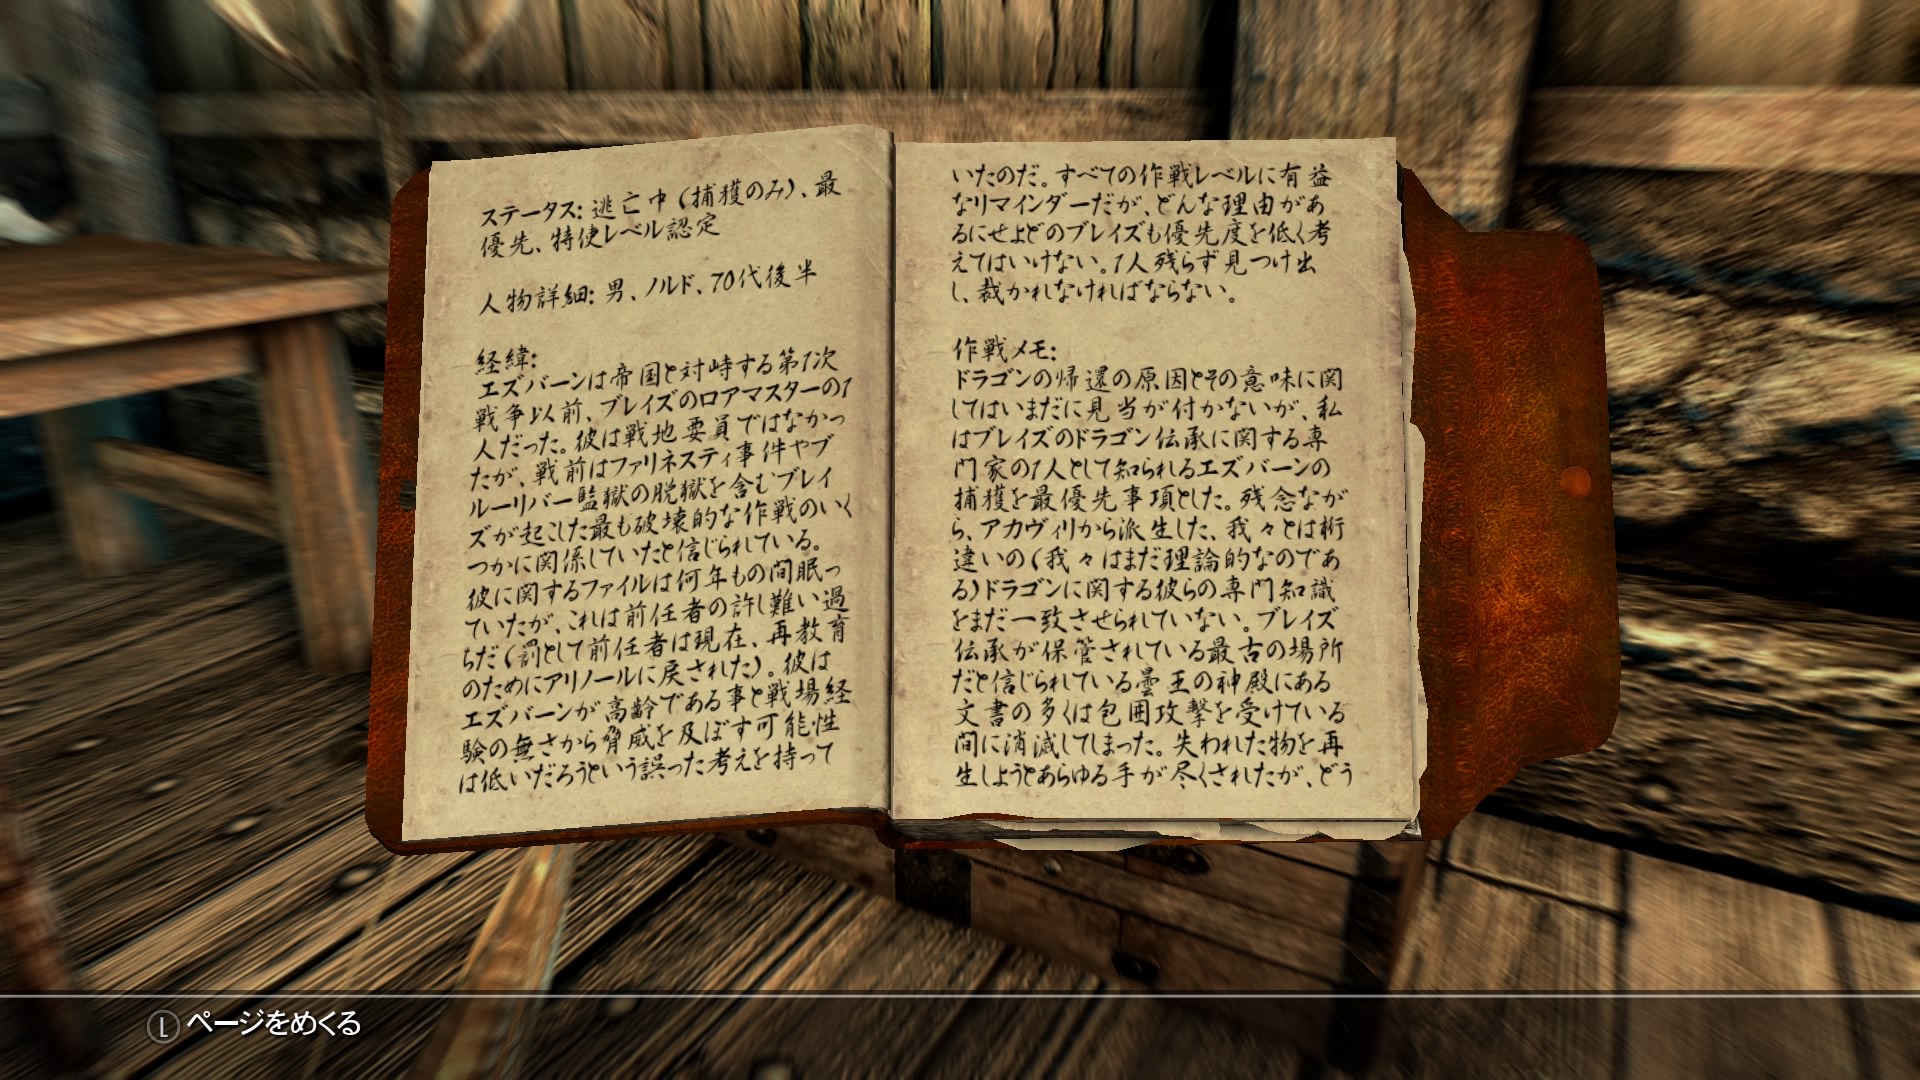 ステータス: 逃亡中 (捕獲のみ)、最
優先、特使レベル認定
人物詳細: 男、ノルド、70代後半
経緯:
エズバーンは帝国と対峙する第1次
戦争以前、ブレイズのロアマスターの1
人だった。彼は戦地要員ではなかっ
たが、戦前はファリネスティ事件やブ
ルーリバー監獄の脱獄を含むブレイ
ズが起こした最も破壊的な作戦のいく
つかに関係していたと信じられている。
彼に関するファイルは何年もの間眠っ
ていたが、これは前任者の許し難い過
ちだ (罰として前任者は現在、再教育
のためにアリノールに戻された)。彼は
エズバーンが高齢である事と戦場経
験の無さから脅威を及ぼす可能性
は低いだろうという誤った考えを持って
いたのだ。すべての作戦レベルに有益
なリマインダーだが、どんな理由があ
るにせよどのブレイズも優先度を低く考
えてはいけない。1人残らず見つけ出
し、裁かれなければならない。
作戦メモ:
ドラゴンの帰還の原因とその意味に関
してはいまだに見当が付かないが、私
はブレイズのドラゴン伝承に関する専
門家の1人として知られるエズバーンの
捕獲を最優先事項とした。残念なが
ら、アカヴィリから派生した、我々とは桁
違いの (我々はまだ理論的なのであ
る) ドラゴンに関する彼らの専門知識
をまだ一致させられていない。ブレイズ
伝承が保管されている最古の場所
だと信じられている曇王の神殿にある
文書の多くは包囲攻撃を受けている
間に消滅してしまった。失われた物を再
生しようとあらゆる手が尽くされたが、どう
L ページをめくる